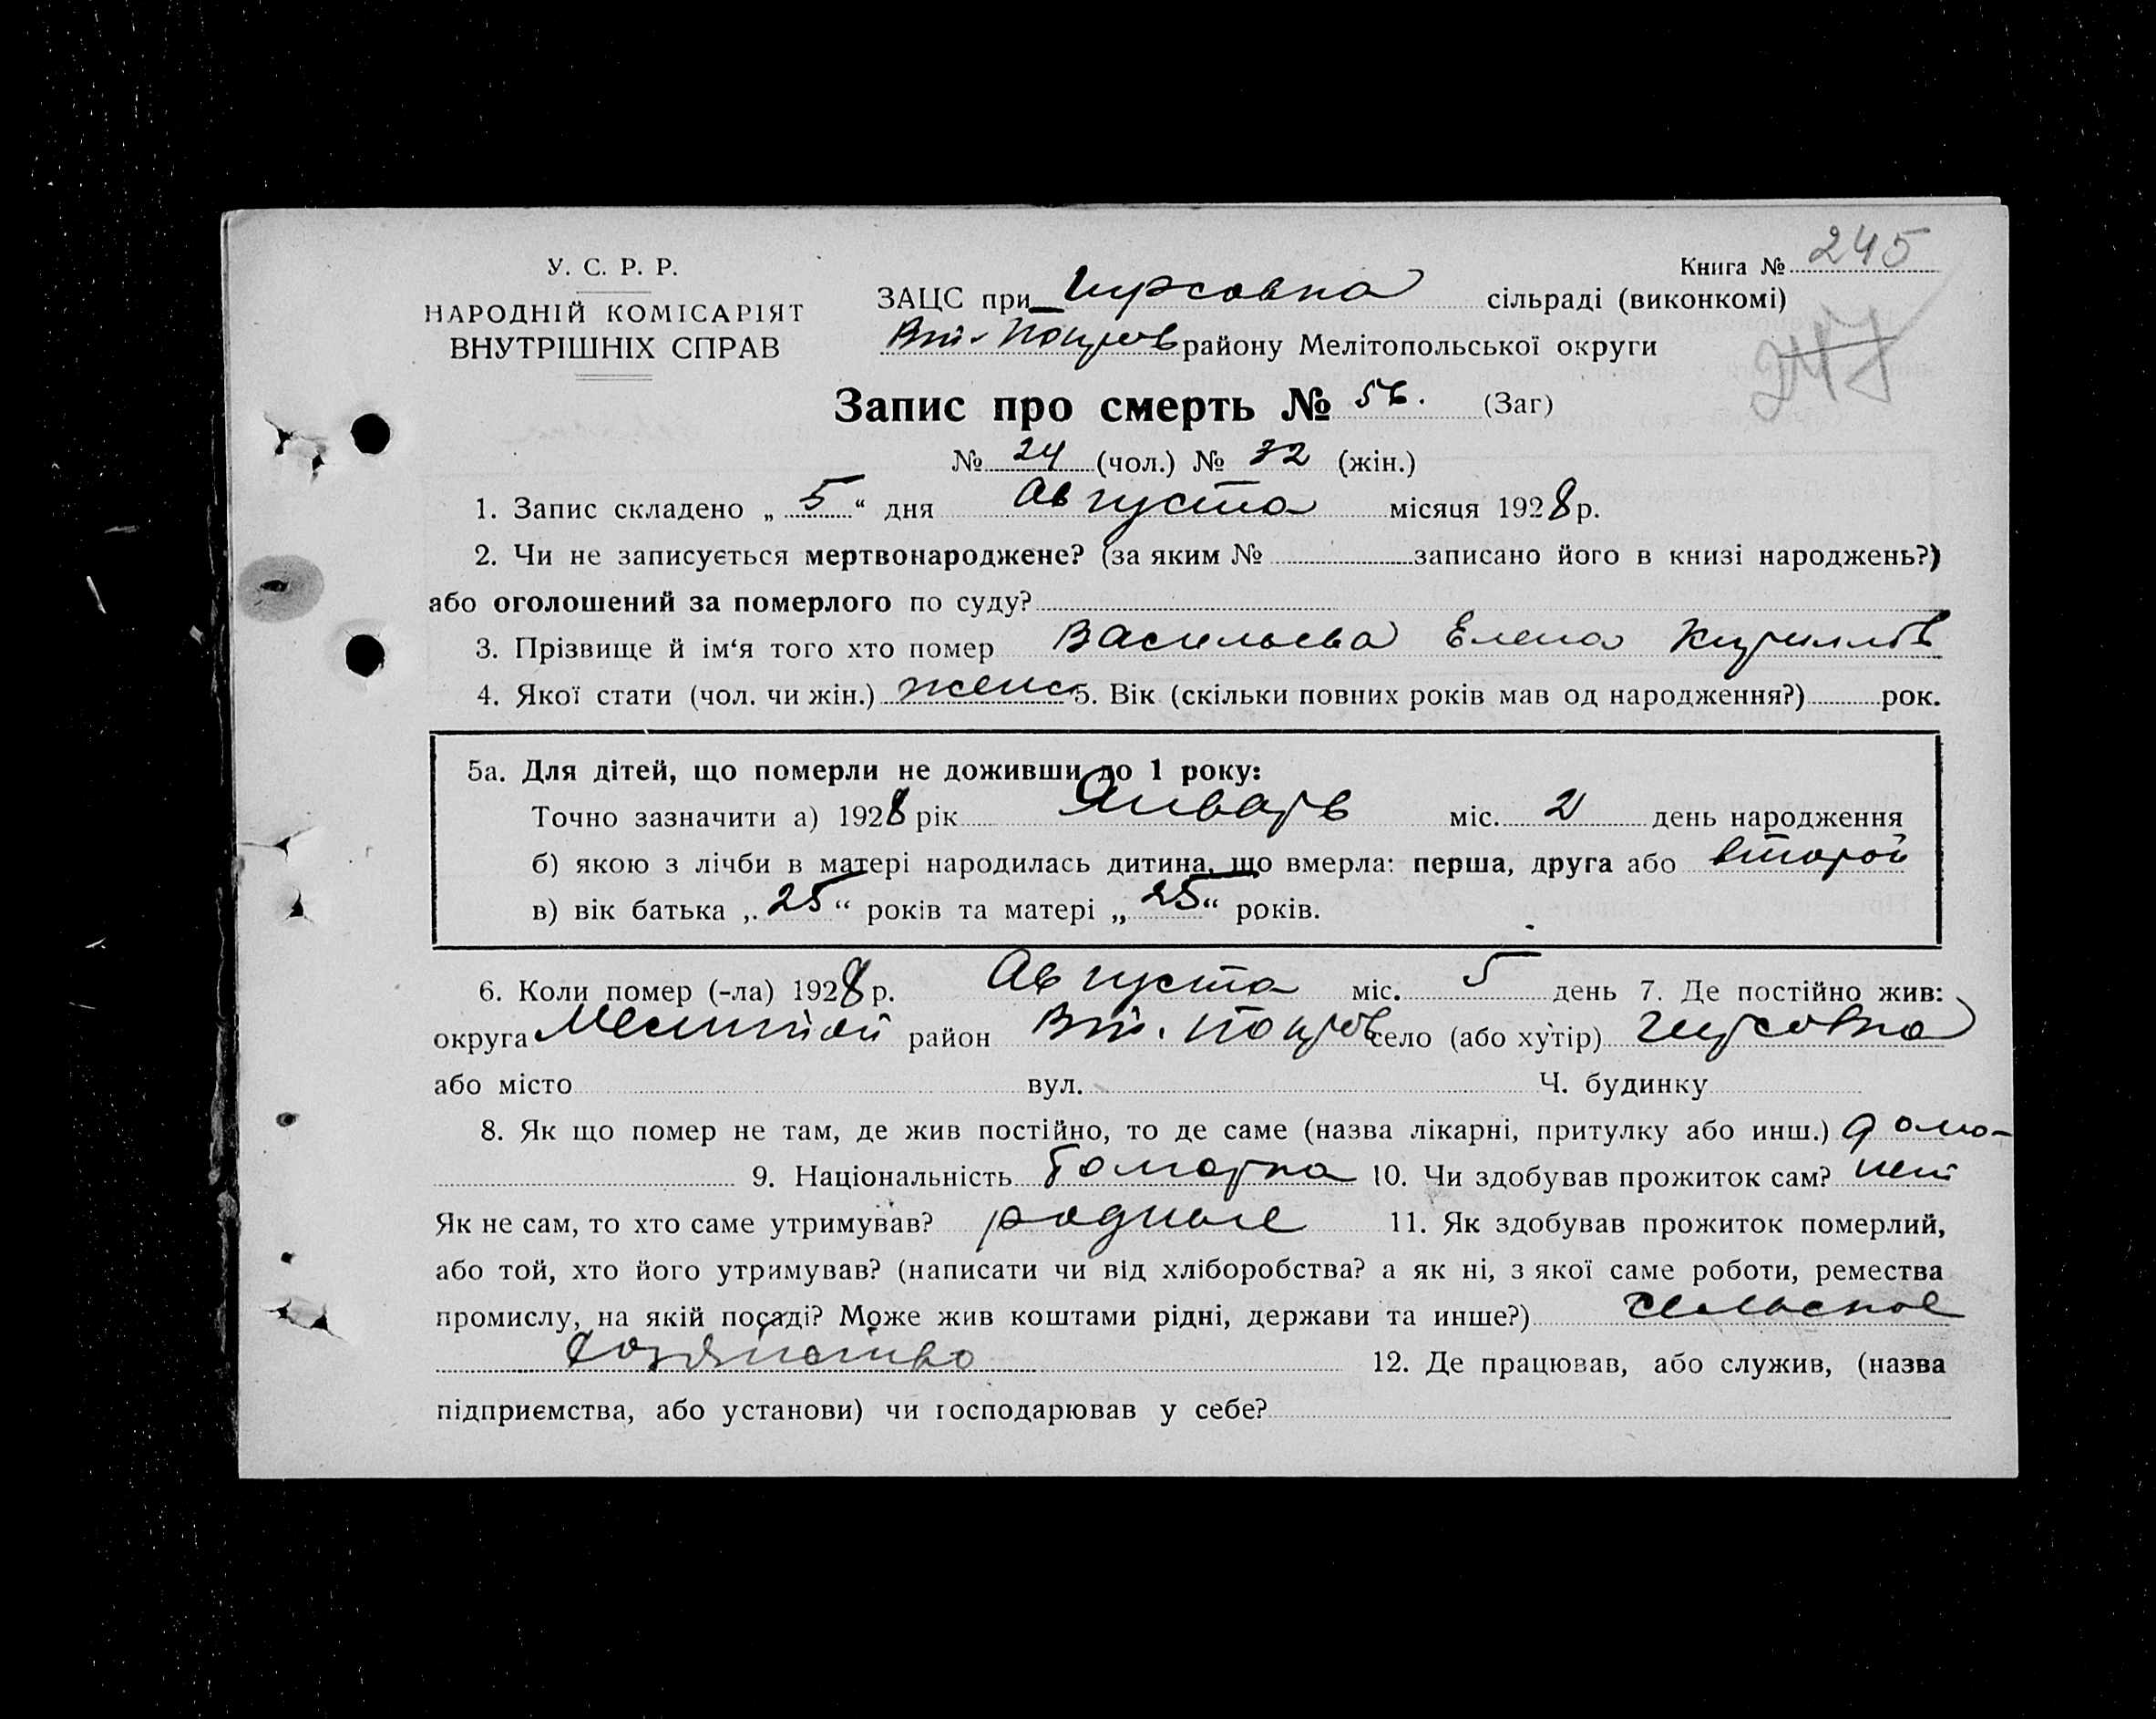 У. С. Р. Р.
НАРОДНІЙ КОМІСАРІЯТ
ВНУТРІШНІХ СПРАВ
Книга № 245
247
ЗАЦС при Гирсовка сільраді (виконкомі)
Вт.-Покров району Мелітопольської округи
Запис про смерть № 56. (Заг)
№ 24 (чол.) № 32 (жін.)
1. Запис складено „ 5 “ дня Августа місяця 1928 р.
2. Чи не записується мертвонароджене? (за яким № записано його в книзі народжень?)
або оголошений за померлого по суду?
3. Прізвище й ім‘я того хто помер Васильева Елена Кириллов
4. Якої стати (чол. чи жін.) женс 5. Вік (скільки повних років мав од народження?) рок.
5а. Для дітей, що померли не доживши до 1 року:
Точно зазначити а) 1928 рік Январь міс. 2 день народження
б) якою з лічби в матері народилась дитина, що вмерла: перша, друга або второй
в) вік батька „ 25 “ років та матері „ 25 “ років.
6. Коли помер (-ла) 1928 р. Августа міс. 5 день 7. Де постійно жив:
округа Мелитпол район Вт. Покров село (або хутір) Гирсовка
або місто вул. Ч. будинку
8. Як що помер не там, де жив постійно, то де саме (назва лікарні, притулку або инш.) дома
9. Національність болгарка 10. Чи здобував прожиток сам? нет
Як не сам, то хто саме утримував? родные 11. Як здобував прожиток померлий,
або той, хто його утримував? (написати чи від хліборобства? а як ні, з якої саме роботи, ремества
промислу, на якій посаді? Може жив коштами рідні, держави та инше?) сельское
хозяйство 12. Де працював, або служив, (назва
підприємства, або установи) чи господарював у себе?